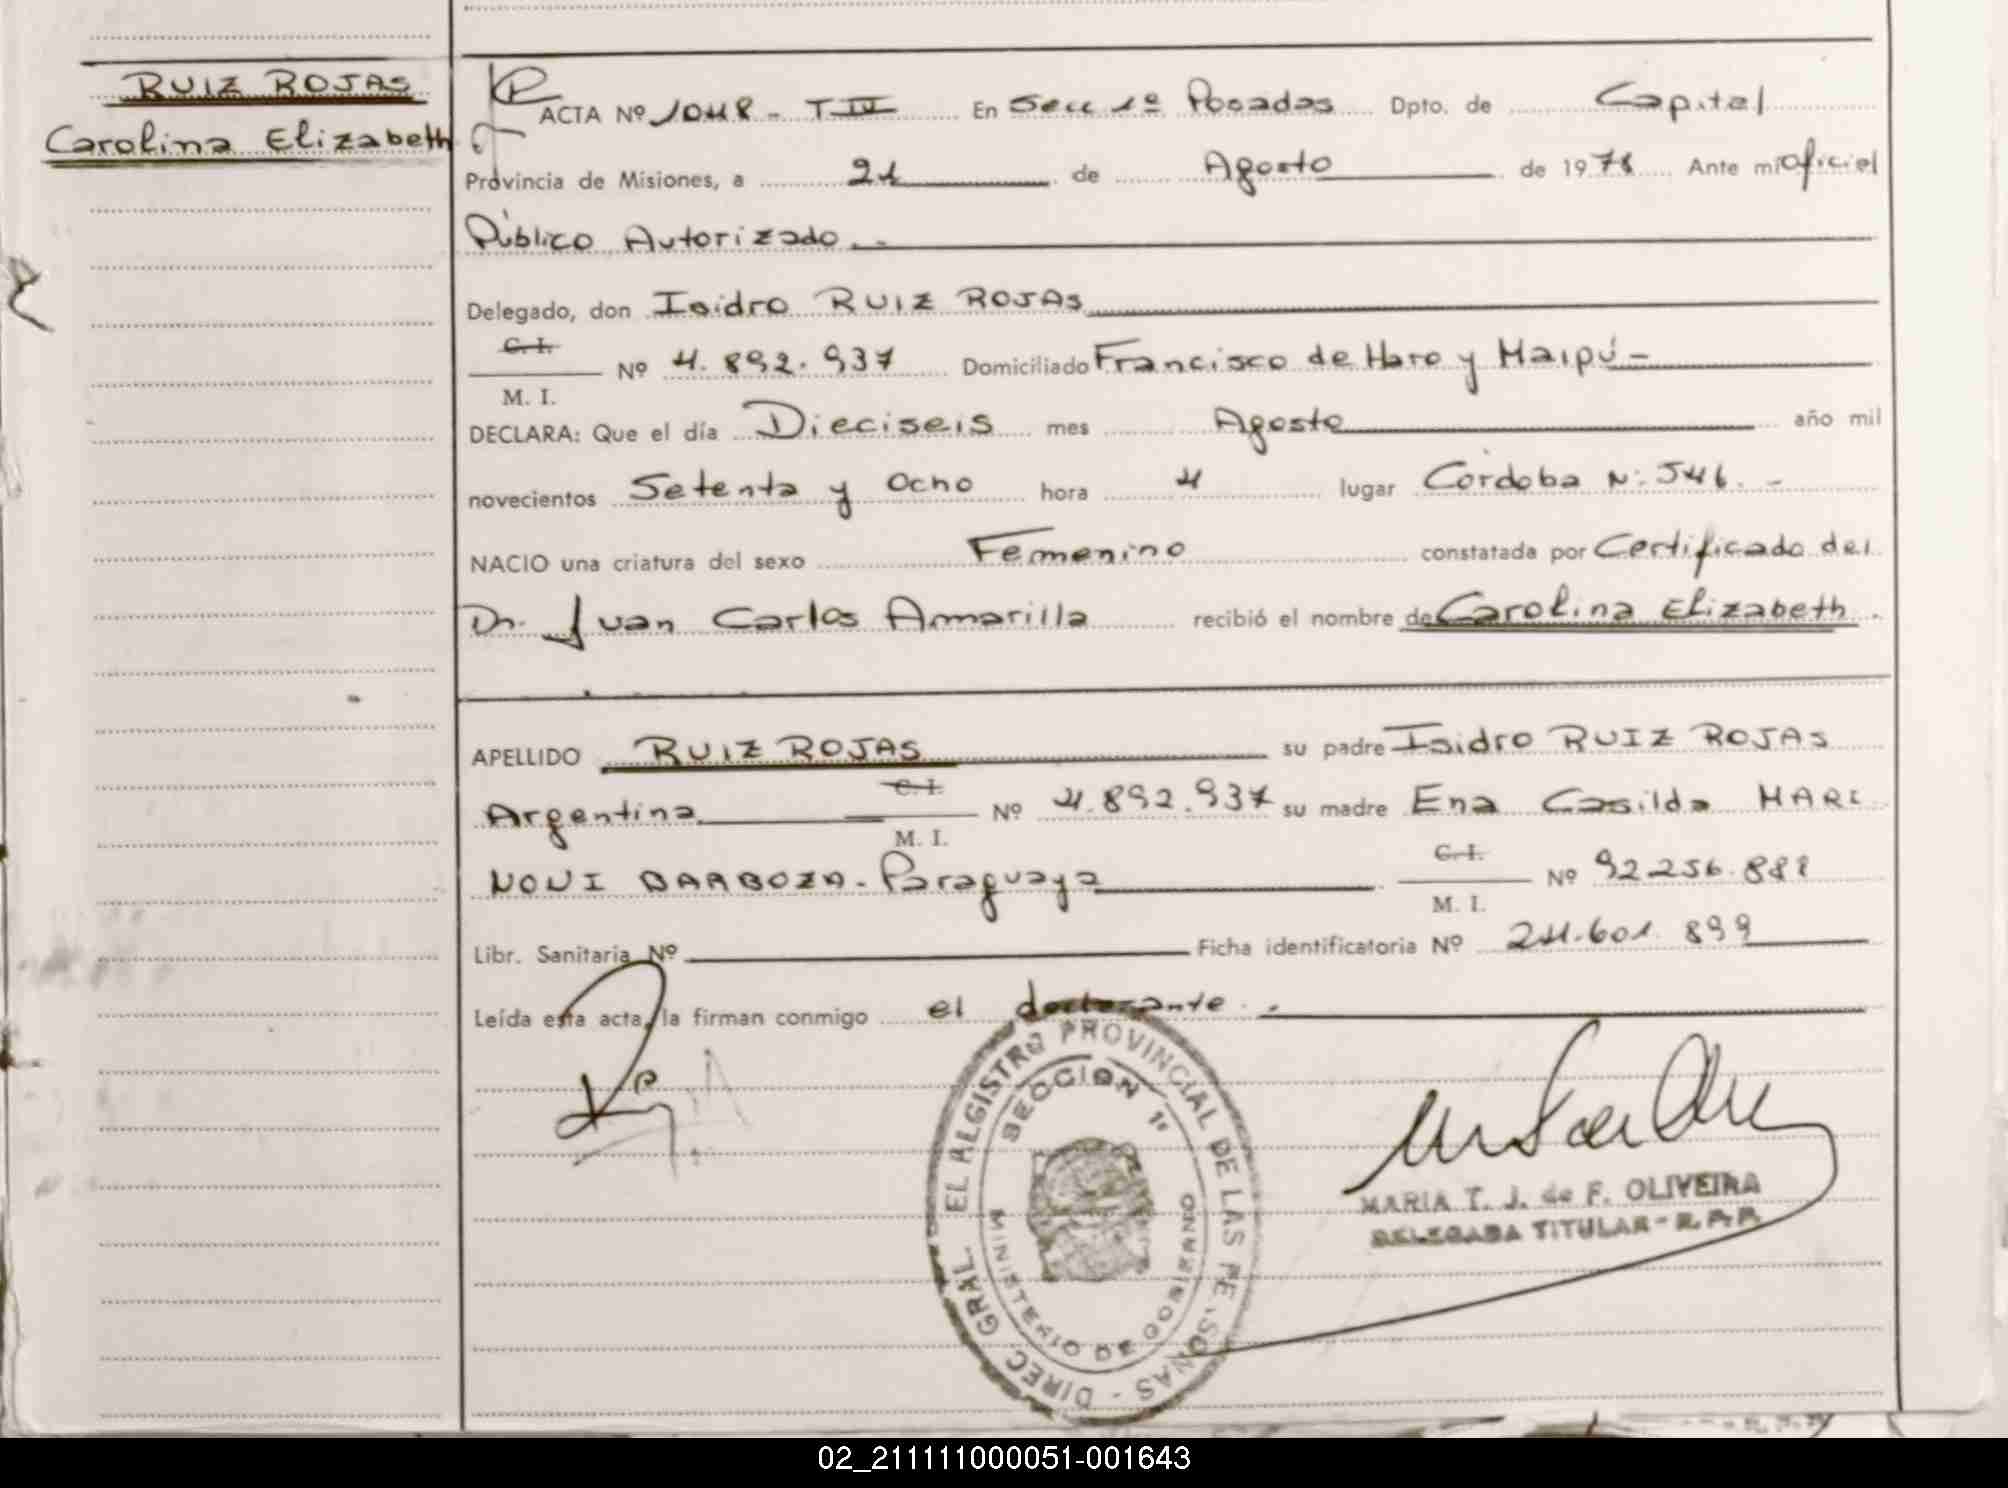 RUIZ ROJAS
Carolina Elizabeth
ACTA Nº 1048 - T IV En Secc 1º Posadas Dpto. de Capital
Provincia de Misiones, a 21 de Agosto de 1978 Ante mi Oficial
Público Autorizado.-
Delegado, don Isidro RUIZ ROJAS
C. I.
M. I. Nº 4.892.937 Domiciliado Francisco de Haro y Maipú-
DECLARA: Que el día Dieciseis mes Agosto año mil
novecientos Setenta y Ocho hora 4 lugar Córdoba Nº 546.-
NACIO una criatura del sexo Femenino constatada por Certificado del
Dr. Juan Carlos Amarilla recibió el nombre de Carolina Elizabeth.
APELLIDO RUIZ ROJAS su padre Isidro RUIZ ROJAS
Argentina C. I.
M. I. Nº 4.892.937 su madre Ena Casilda MARI
NONI BARBOZA- Paraguaya C. I.
M. I. Nº 92.256.888
Libr. Sanitaria Nº Ficha identificatoria Nº 24.601.899
Leída esta acta, la firman conmigo el declarante.-
DIREC. GRAL. EL REGISTRO PROVINCIAL DE LAS PE.SONAS -
SECCION 1º
MINISTERIO DE GOBIERNO
MARIA T. J. de F. OLIVEIRA
DELEGADA TITULAR - R.P.P.
02_211111000051-001643